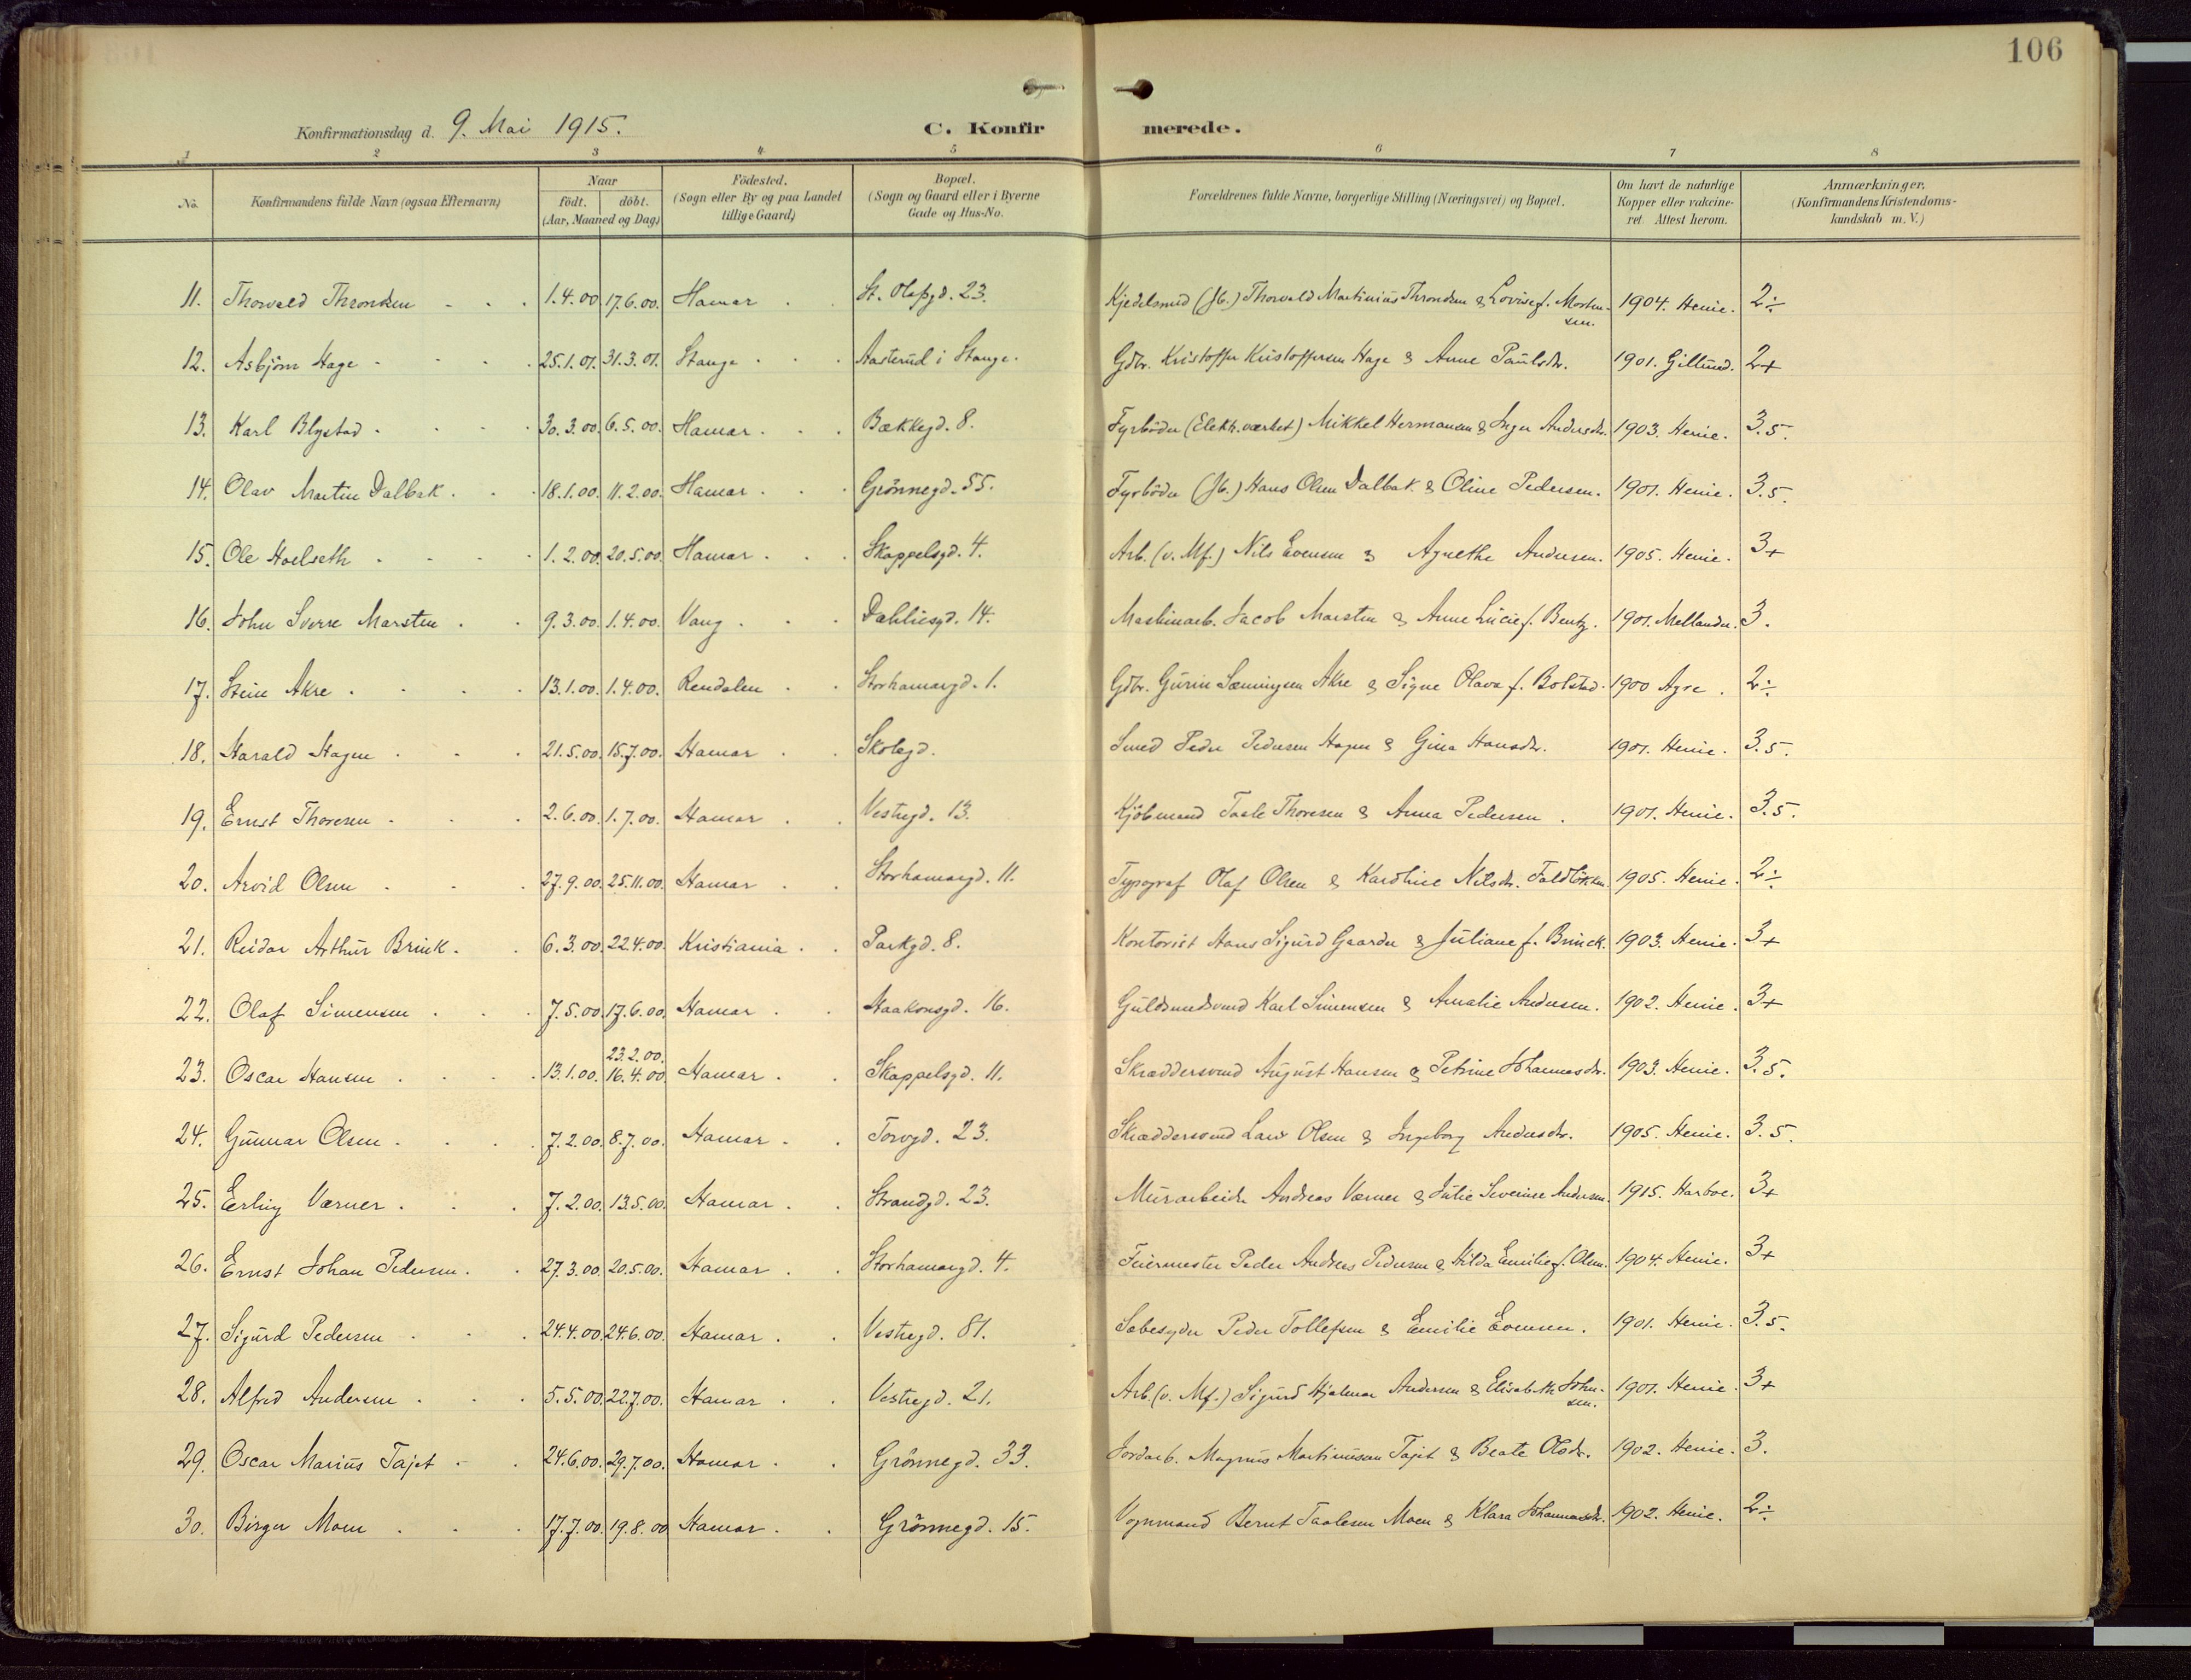 106
Konfirmationsdag d. 9. Mai 1915.
C. Konfirmerede.
1 2 3 4 5 6 7 8
No. | Konfirmandens fulde Navn (ogsaa Efternavn) | Naar födt. döbt. (Aar, Maaned og Dag) | Födested. (Sogn eller By og paa Landet tillige Gaard) | Bopæl. (Sogn og Gaard eller i Byerne Gade og Hus-No. | Forældrenes fulde Navne, borgerlige Stilling (Næringsvei) og Bopæl. | Om havt de naturlige Kopper eller vakcineret. Attest herom. | Anmærkninger. (Konfirmandens Kristendomskundskab m. V.)
11. Thorvald Throndsen 1.4.00 17.6.00. Hamar St. Olafsgd. 23. Kjedelsmed (Jb.) Thorvald Martinius Throndsen & Lovise f. Mortensen. 1904. Henie. 2÷
12. Asbjörn Hage 25.1.01. 31.3.01. Stange Aasterud i Stange. Gdbr. Kristoffer Kristoffersen Hage & Anne Paulsdr. 1901. Gillund. 2+
13. Karl Blystad 30.3.00. 6.5.00. Hamar Bækkegd. 8. Fyrböder (Elektr.værket) Mikkel Hermansen & Inger Andersdr. 1903. Henie. 3.5.
14. Olav Martin Dalbak 18.1.00. 11.2.00. Hamar Grönnegd. 55. Fyrböder (Jb.) Hans Olsen Dalbak & Oline Pedersen. 1901. Henie. 3.5.
15. Ole Hoelseth 1.2.00. 20.5.00. Hamar Skappelsgd. 4. Arb. (v. Mf.) Nils Evensen & Agnethe Andersen. 1905. Henie. 3+
16. John Sverre Marsten 9.3.00. 1.4.00. Vang Dahliesgd. 14. Maskinarb. Jacob Marsten & Anne Lucie f. Bentz. 1901. Mellander. 3.
17. Stein Akre 13.1.00. 1.4.00. Rendalen Storhamargd. 1. Gdbr. Gurin Sæmingsen Akre & Signe Olava f. Bolstad. 1900 Agre. 2÷
18. Harald Hagen 21.5.00. 15.7.00. Hamar Skolegd. Smed Peder Pedersen Hagen & Gina Hansdr. 1901. Henie. 3.5.
19. Ernst Thoresen 2.6.00. 1.7.00. Hamar Vestregd. 13. Kjöbmand Taale Thoresen & Anna Pedersen. 1901. Henie. 3.5.
20. Arvid Olsen 27.9.00. 25.11.00. Hamar Storhamargd. 11. Typograf Olaf Olsen & Karoline Nilsdr. 1905. Henie. 2÷
21. Reidar Arthur Brinck 6.3.00. 22.4.00. Kristiania Parkgd. 8. Kontorist Hans Sigurd Gaarder & Juliane f. Brinck. 1903. Henie. 3+
22. Olaf Simensen 7.5.00. 17.6.00. Hamar Haakonsgd. 16. Guldsmedsvend Karl Simensen & Amalie Andersen. 1902. Henie. 3+
23. Oscar Hansen 13.1.00. 23.2.00. 16.4.00 Hamar Skappelsgd. 11. Skræddersvend August Hansen & Petrine Johannesdr. 1903. Henie. 3.5.
24. Gunnar Olsen 7.2.00. 8.7.00. Hamar Torvgd. 23. Skræddersvend Laur Olsen & Ingeborg Andersdr. 1905. Henie. 3.5.
25. Erling Værner 7.2.00. 13.5.00. Hamar Strandgd. 23. Murarbeider Andreas Værner & Julie Severine Andersen. 1915. Harboe. 3+
26. Ernst Johan Pedersen 27.3.00. 20.5.00. Hamar Storhamargd. 4. Feiermester Peder Andreas Pedersen & Hilda Emilie f. Olsen. 1904. Henie. 3+
27. Sigurd Pedersen 24.4.00. 24.6.00. Hamar Vestregd. 81. Sæbesyder Peder Tollefsen & Emilie Evensen. 1901. Henie. 3.5.
28. Alfred Andersen 5.5.00. 22.7.00. Hamar Vestregd. 21. Arb. (v. Mf.) Sigurd Hjalmar Andersen & Elisabeth Johnsen. 1901. Henie. 3+
29. Oscar Marius Tajet 24.6.00. 29.7.00. Hamar Grönnegd. 33. Jordarb. Magnus Martinussen Tajet & Beate Olsdr. 1902. Henie. 3.
30. Birger Moen 17.7.00. 19.8.00 Hamar Grönnegd. 15. Vognmand Bernt Taalesen Moen & Klara Johannesdr. 1902. Henie. 2÷